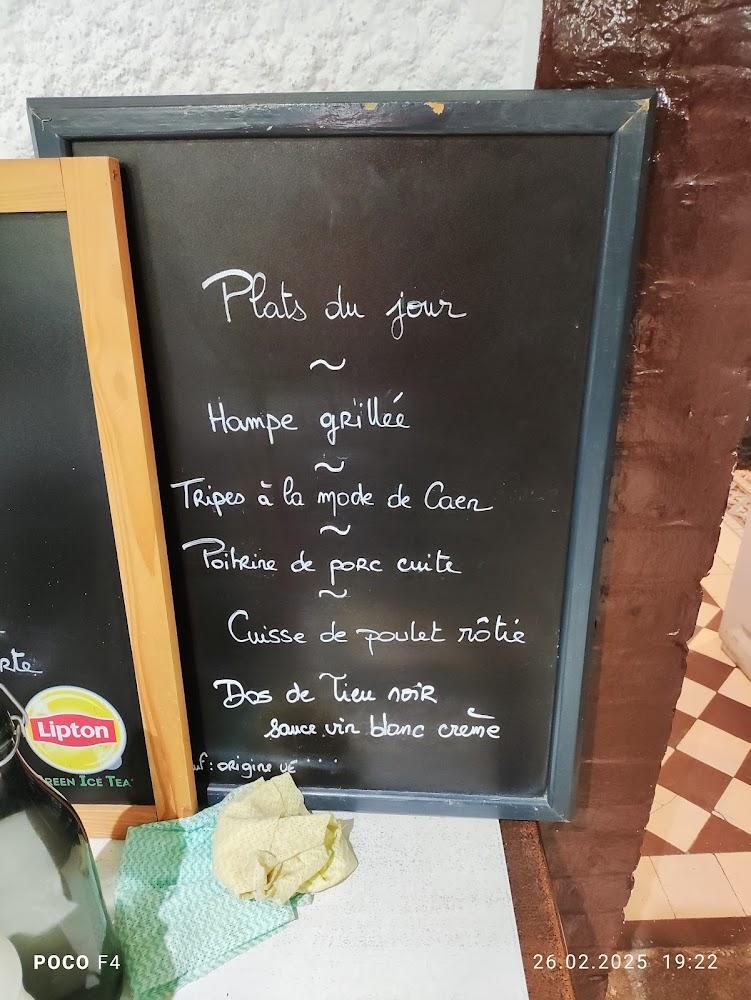 Plats du jour
~
Hampe grillée
~
Tripes à la mode de Caen
~
Poitrine de porc cuite
~
Cuisse de poulet rôtie
Dos de lieu noir
sauce vin blanc crème
uf: origine UE
rte
Lipton
REEN ICE TEA
POCO F4
26.02.2025 19:22